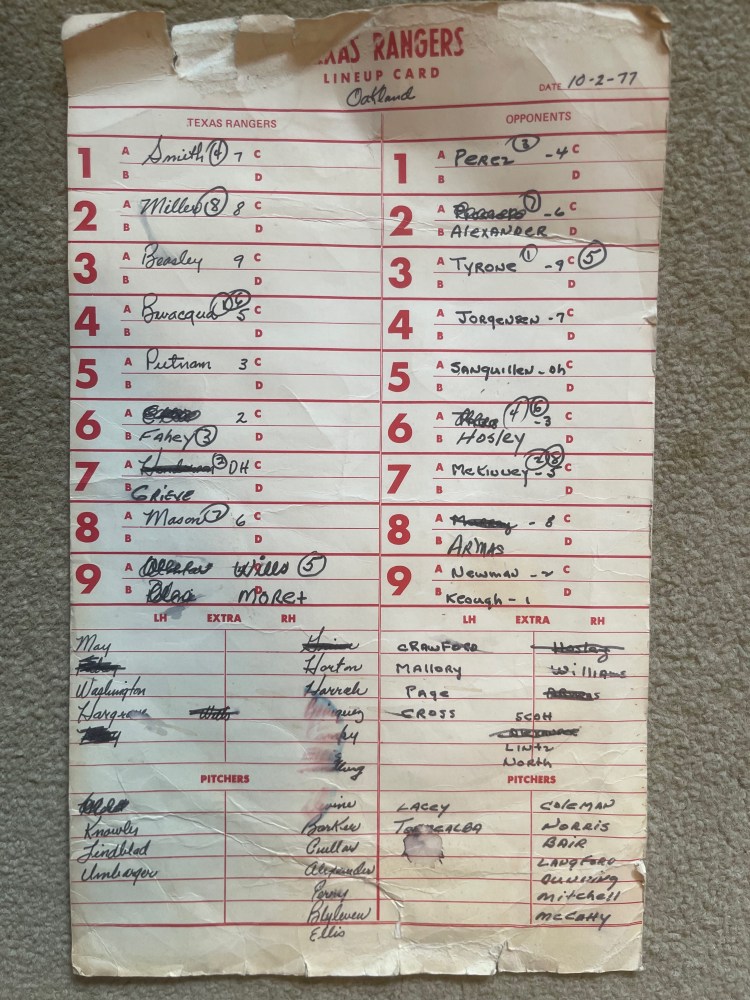 XAS RANGERS
LINEUP CARD
Oakland
DATE 10-2-77
TEXAS RANGERS
1 A Smith 4 7 C
B D
2 A Miller 8 8 C
B D
3 A Beasley 9 C
B D
4 A Bevacqua 6 5 C
B D
5 A Putnam 3 C
B D
6 A 2 C
B Fahey 3 D
7 A Henderson 3 DH C
B GRIEVE D
8 A Mason 7 6 C
B D
9 A Wills 5 C
B MORET D
LH EXTRA RH
May
Horton
Washington Harrah
Hargrove
PITCHERS
Knowles Barker
Lindblad Cuellar
Umbarger Alexander
Perry
Blyleven
Ellis
OPPONENTS
1 A PEREZ 3 -4 C
B D
2 A 7 -6 C
B ALEXANDER D
3 A TYRONE 1 -9 C 5
B D
4 A JORGENSEN -7 C
B D
5 A SANQUILLEN - DH C
B D
6 A 4 6 -3 C
B HOSLEY D
7 A McKINNEY 2 8 -5 C
B D
8 A Murray - 8 C
B ARMAS D
9 A NEWMAN - 2 C
B KEOUGH - 1 D
LH EXTRA RH
CRAWFORD Hosley
MALLORY WILLIAMS
PAGE
CROSS SCOTT
LINTZ
NORTH
PITCHERS
LACEY COLEMAN
TORREALBA NORRIS
BAIR
LANGFORD
DUNNING
MITCHELL
McCATTY